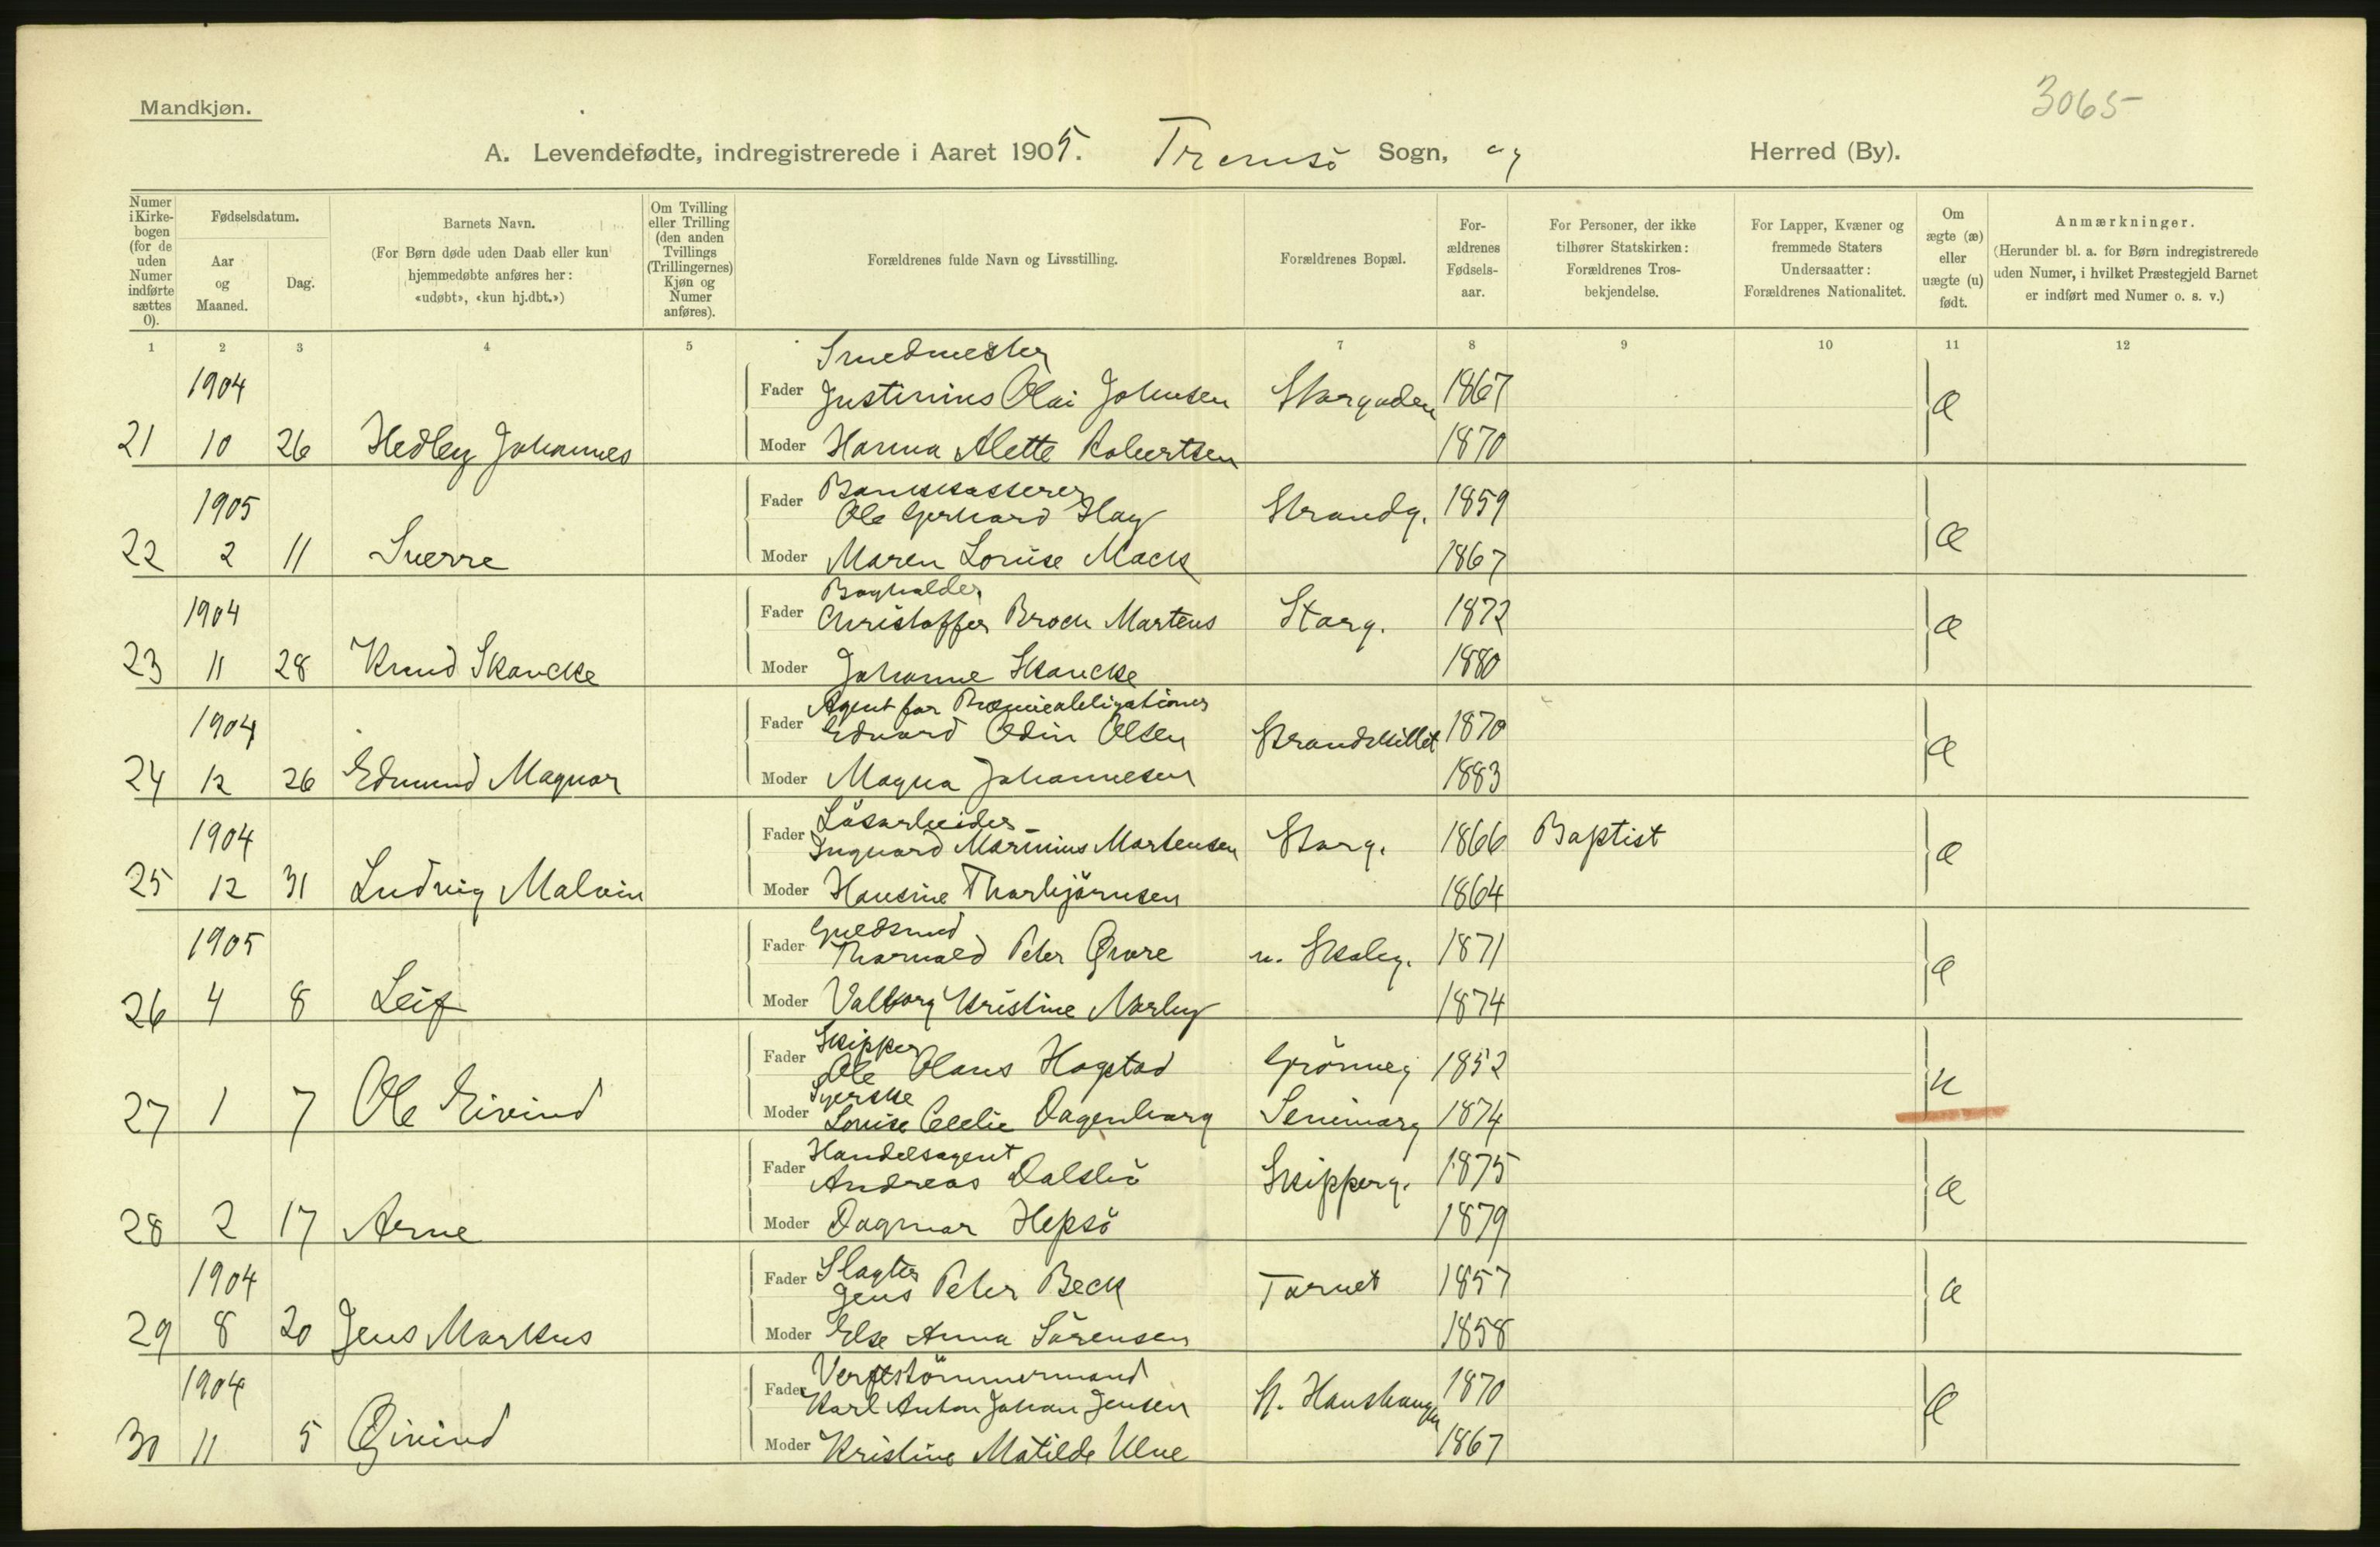 3065
Mandkjøn.
A. Levendefødte, indregistrerede i Aaret 1905. Tromsö Sogn, og Herred (By).
Numer i Kirkebogen (for de uden Numer indførte sættes 0).
Fødselsdatum.
Aar og Maaned.
Dag.
Barnets Navn.
(For Børn døde uden Daab eller kun hjemmedøbte anføres her: «udøbt», «kun hj.dbt.»)
Om Tvilling eller Trilling (den anden Tvillings (Trillingernes) Kjøn og Numer anføres).
Forældrenes fulde Navn og Livsstilling.
Forældrenes Bopæl.
For-ældrenes Fødsels-aar.
For Personer, der ikke tilhører Statskirken: Forældrenes Tros-bekjendelse.
For Lapper, Kvæner og fremmede Staters Undersaatter: Forældrenes Nationalitet.
Om ægte (æ) eller uægte (u) født.
Anmærkninger.
(Herunder bl. a. for Børn indregistrerede uden Numer, i hvilket Præstegjeld Barnet er indført med Numer o. s. v.)
1 2 3 4 5 7 8 9 10 11 12
Smedmester
1904 Fader Justinius Olai Johnsen Storgaden 1867 æ
21 10 26 Hedley Johannes Moder Hanna Alette Robertsen 1870
Bankkasserer
1905 Fader Ole Gerhard Hay Strandg. 1859 æ
22 2 11 Sverre Moder Maren Louise Mack 1867
Bogholder
1904 Fader Christoffer Broch Martens Storg. 1872 æ
23 11 28 Knud Skancke Moder Johanne Skancke 1880
Agent for Præmieobligationer
1904 Fader Edvard Odin Olsen Strandskillet 1870 æ
24 12 26 Edmund Magnar Moder Magna Johannesen 1883
Lösarbeider
1904 Fader Ingvard Marinius Mortensen Storg. 1866 Baptist æ
25 12 31 Ludvig Malvin Moder Hansine Thorbjörnsen 1864
Guldsmed
1905 Fader Thorvald Peter Qvare n. Skoleg. 1871 æ
26 4 8 Leif Moder Valborg Kristine Norby 1874
Skipper
Fader Ole Olaus Hogstad Grönneg 1852 u
Syerske
27 1 7 Ole Eivind Moder Louise Cecelie Dagenborg Seminarg 1874
Handelsagent
Fader Andreas Dalsbö Skipperg. 1875 æ
28 2 17 Arne Moder Dagmar Hepsö 1879
Slagter
1904 Fader Jens Peter Beck Tornet 1857 æ
29 8 20 Jens Markus Moder Else Anna Sörensen 1858
Verftstömmermand
1904 Fader Karl Anton Johan Jensen St. Hanshaugen 1870 æ
30 11 5 Øivind Moder Kristine Matilde Ulve 1867